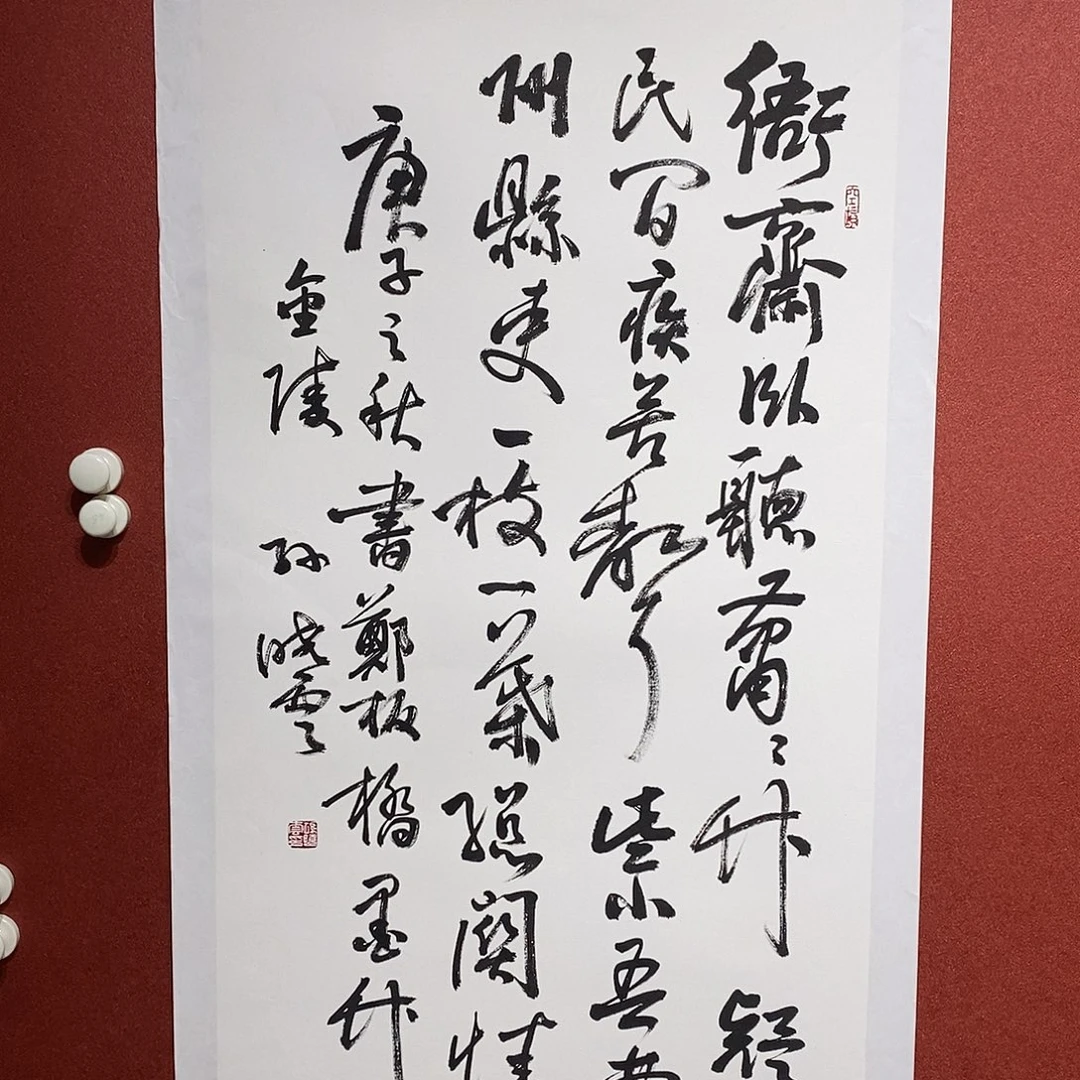 衙齋臥聽蕭〻竹疑
民間疾苦聲些小吾
州縣吏一枝一葉總關情
庚子之秋書鄭板橋墨竹
金陵孫曉雲